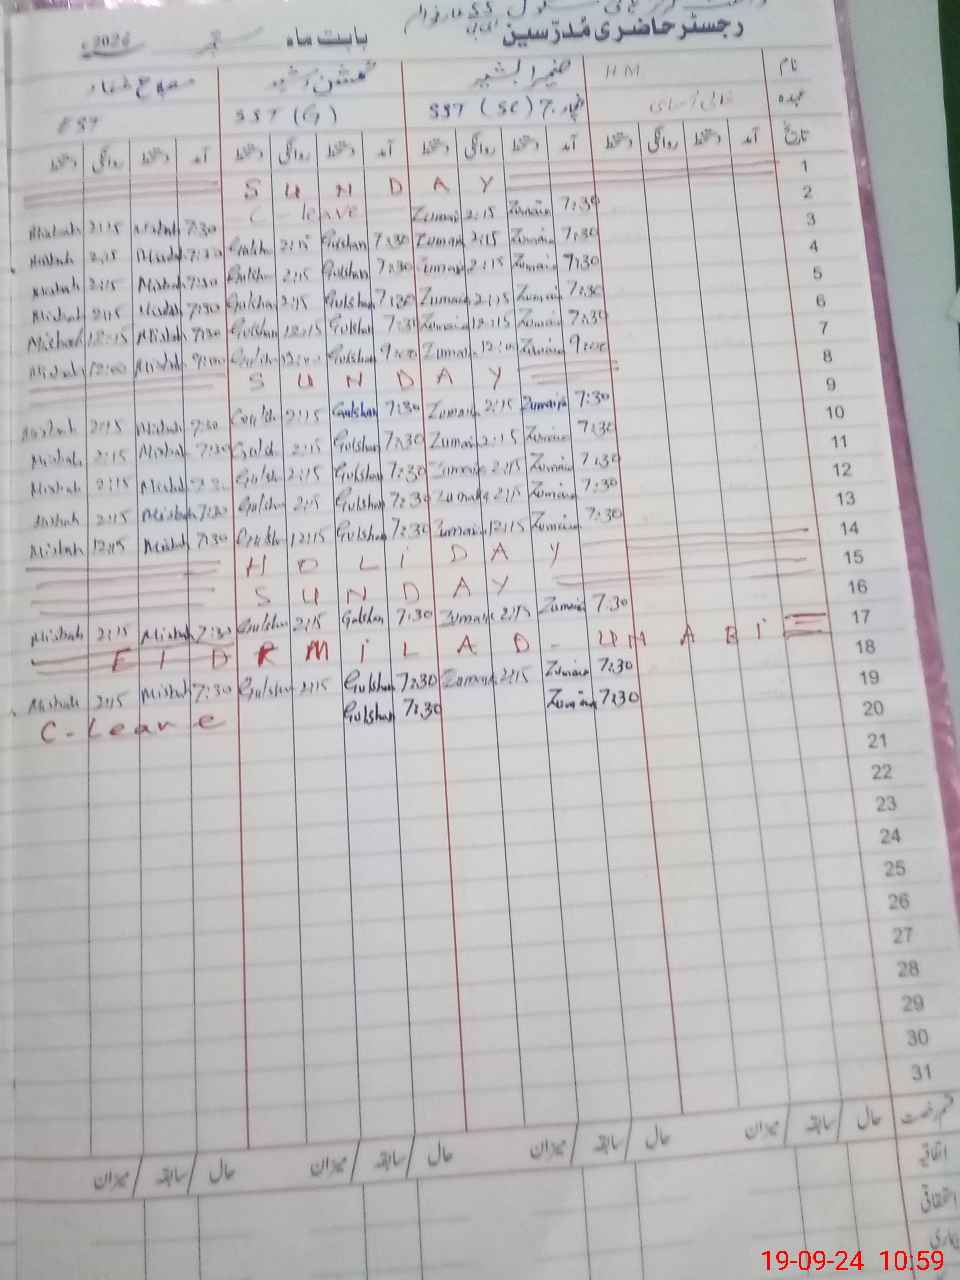 رجسٹر حاضری مُدرّسین بابت ماہ
نام HM
عہدہ SST (SC) SST (G) EST
تاریخ آمد دستخط روانگی دستخط آمد دستخط روانگی دستخط آمد دستخط روانگی دستخط آمد دستخط روانگی دستخط
1 SUNDAY
2 7:30 Zumair 2:15 Zumair C-leave 7:30 Misbah 2:15 Misbah
3 7:30 Zumair 2:15 Zumair 7:30 Gulshan 2:15 Gulshan 7:30 Misbah 2:15 Misbah
4 7:30 Zumair 2:15 Zumair 7:30 Gulshan 2:15 Gulshan 7:30 Misbah 2:15 Misbah
5 7:30 Zumair 2:15 Zumair 7:30 Gulshan 2:15 Gulshan 7:30 Misbah 2:15 Misbah
6 7:30 Zumair 12:15 Zumair 7:30 Gulshan 12:15 Gulshan 7:30 Misbah 12:15 Misbah
7 9:00 Zumair 12:00 Zumair 9:00 Gulshan 12:00 Gulshan 9:00 Misbah 12:00 Misbah
8 SUNDAY
9 7:30 Zumair 2:15 Zumair 7:30 Gulshan 2:15 Gulshan 7:30 Misbah 2:15 Misbah
10 7:30 Zumair 2:15 Zumair 7:30 Gulshan 2:15 Gulshan 7:30 Misbah 2:15 Misbah
11 7:30 Zumair 2:15 Zumair 7:30 Gulshan 2:15 Gulshan Misbah 2:15 Misbah
12 7:30 Zumair 2:15 Zumair 7:30 Gulshan 2:15 Gulshan 7:30 Misbah 2:15 Misbah
13 7:30 Zumair 12:15 Zumair 7:30 Gulshan 12:15 Gulshan 7:30 Misbah 12:15 Misbah
14 HOLiDAY
15 SUNDAY
16 7:30 Zumair 2:15 Zumair 7:30 Gulshan 2:15 Gulshan 7:30 Misbah 2:15 Misbah
17 EID MiLAD-UNABI
18 7:30 Zumair 2:15 Zumair 7:30 Gulshan 2:15 Gulshan 7:30 Misbah 2:15 Misbah
19 7:30 Zumair 7:30 Gulshan C-Leave
20
21
22
23
24
25
26
27
28
29
30
31
قسم رخصت حال / سابقہ / میزان حال / سابقہ / میزان حال / سابقہ / میزان حال / سابقہ / میزان
اتفاقیہ
استحقاقی
بیماری
19-09-24 10:59